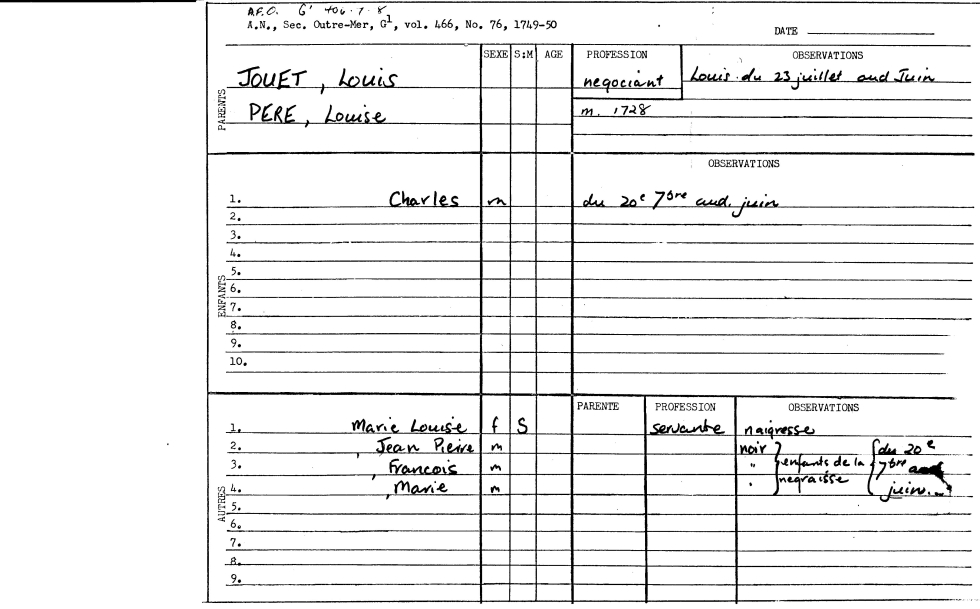 A.F.O. G¹ 466.7.8
A.N., Sec. Outre-Mer, G¹, vol. 466, No. 76, 1749-50
DATE
SEXE S:M AGE PROFESSION OBSERVATIONS
PARENTS
JOUET, Louis negociant Louis du 23 juillet aud Juin
PERE, Louise m. 1728
OBSERVATIONS
ENFANTS
1. Charles m du 20e 7bre aud. juin
2.
3.
4.
5.
6.
7.
8.
9.
10.
PARENTE PROFESSION OBSERVATIONS
AUTRES
1. Marie Louise f S servante naigresse
2. , Jean Pieire m noir } enfants de la negraisse { du 20e
3. , Francois m " 7bre aud
4. , Marie m " juin.
5.
6.
7.
8.
9.